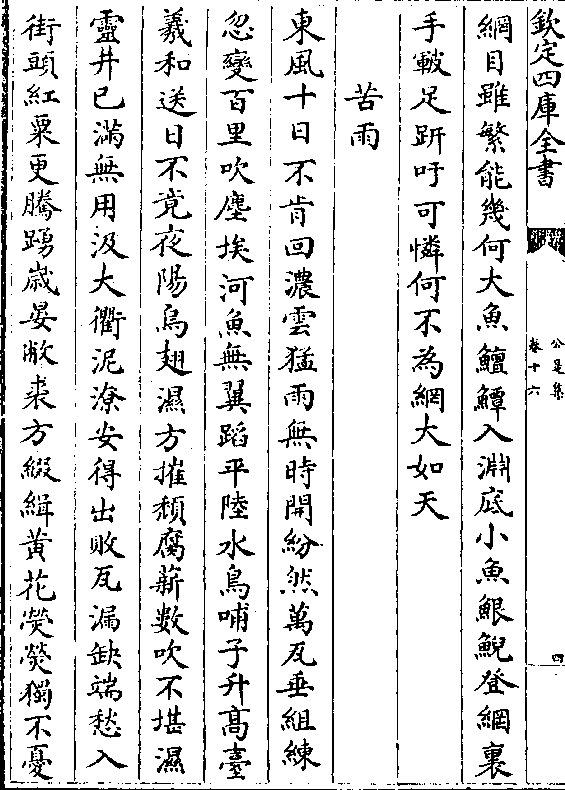 欽定四庫全書
公是集
卷十六
四
網目雖繁能幾何大魚鱣鱏入淵底小魚鯤鯢登網裏
手皸足趼吁可憐何不為網大如天
苦雨
東風十日不肯回濃雲猛雨無時開紛然萬瓦垂組練
忽變百里吹塵埃河魚無翼蹈平陸水鳥哺子升高臺
羲和送日不竟夜陽烏翅濕方摧頹腐薪數吹不堪濕
靈井已滿無用汲大衢泥潦安得出敗瓦漏缺端愁入
街頭紅粟更騰踴歲晏敝裘方綴緝黃花熒熒獨不憂